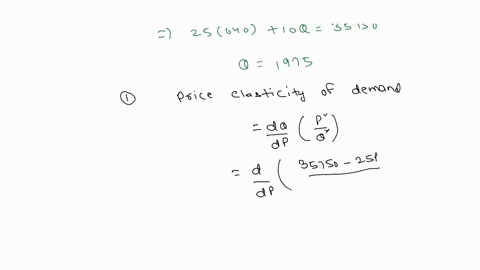 =) 25(640) + 10Q = 35750
Q = 1975
① Price elasticity of demand
= dQ/dP (P*/Q*)
= d/dP ( 35750 - 25P